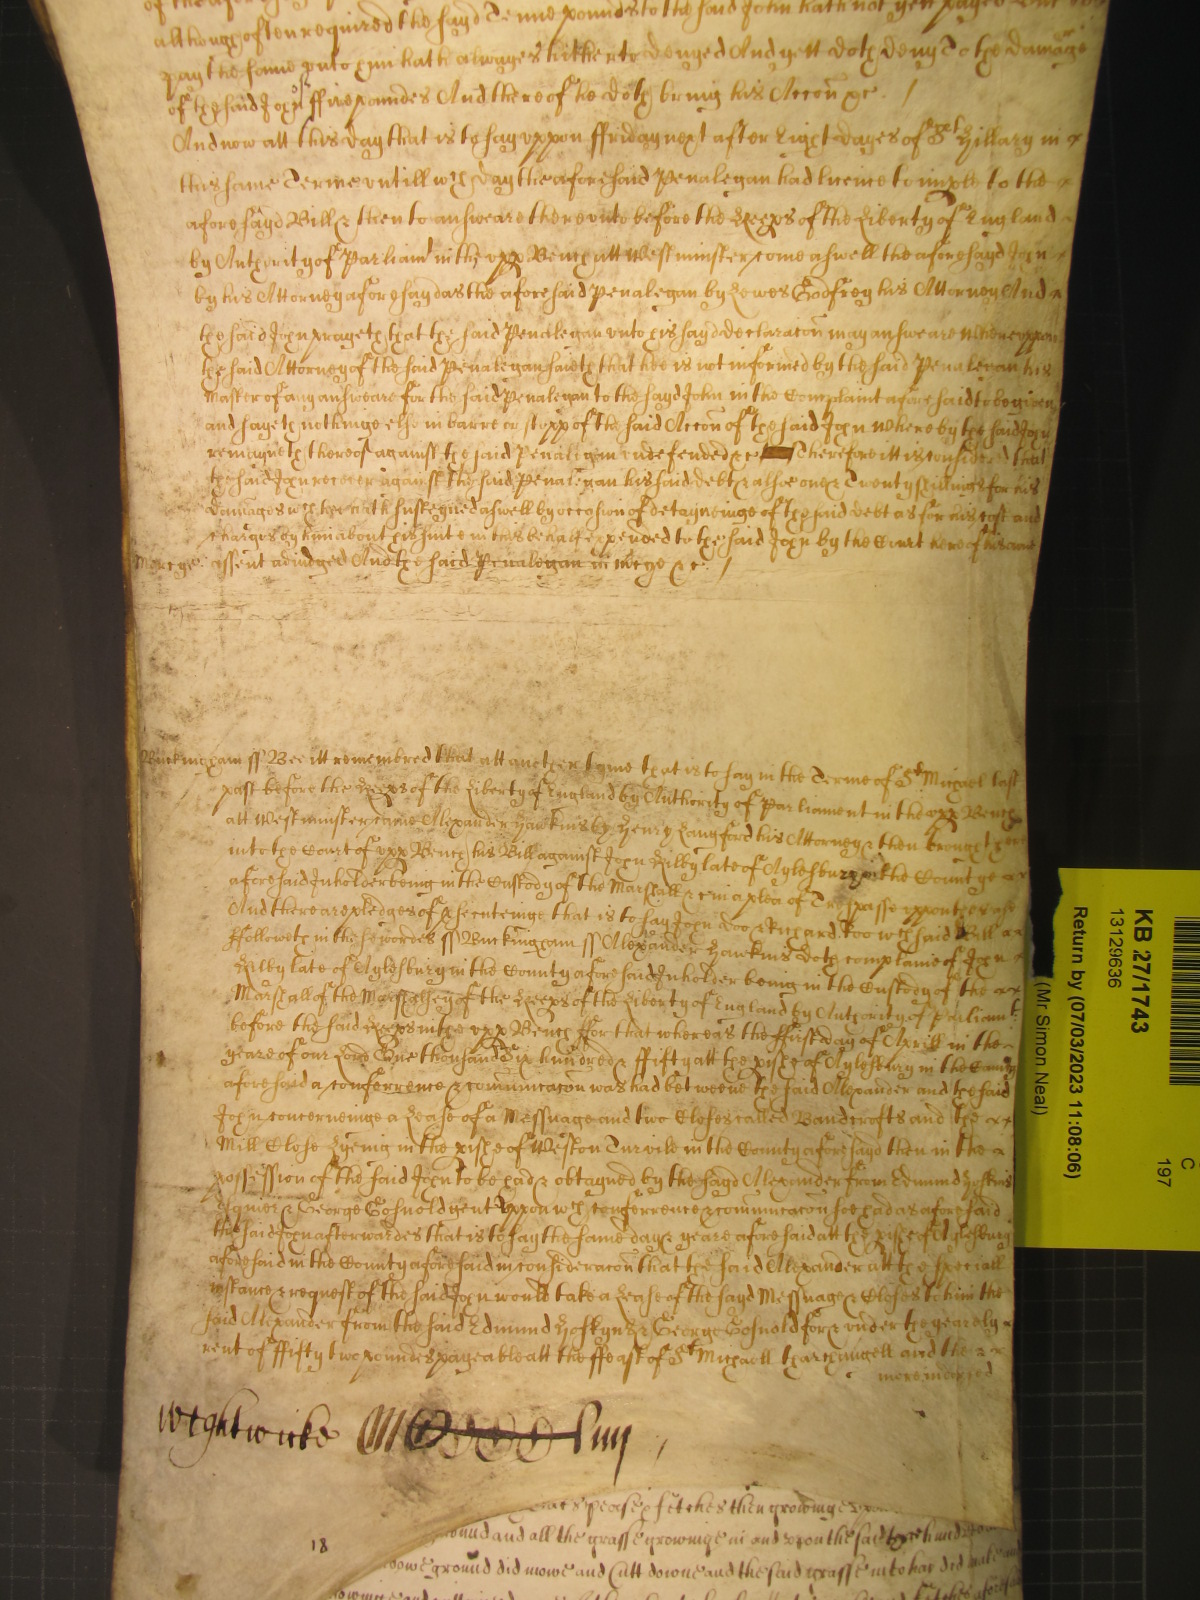 although often required the sayd Tenne pounds to the said John hath not yett payed But
pay the same unto him hath alwayes hitherto denyed And yett doth deny To the damage
of the said John ffive poundes And thereof he doth bring his Accon &c. /
And now att this day that is to say uppon ffriday next after Eight dayes of St Hillary in
this same Terme untill wch day the aforesaid Penalegan had licence to imple to the
aforesayd Bill & then to answeare thereunto before the Keeps of the Liberty of England
by Authority of Parliamt in the upp Bench att Westminster come aswell the aforesayd John
by his Attorney aforesayd as the aforesaid Penalegan by Lewes Godfrey his Attorney And
the said John prayeth that the said Penalegan unto his sayd declaracon may answeare Whereuppon
the said Attorney of the said Penalegan saith that hee is not informed by the said Penalegan his
Master of any answeare for the said Penalegan to the sayd John in the Complaint aforesaid to be given
and sayeth nothinge else in barre or stopp of the said Accon of the said John Whereby the said John
remayneth thereof against the said Penalegan undefended &c Therefore itt is considered that
the said John recover against the said Penalegan his said debt & alsoe one & Twenty shillings for his
damages wch he hath susteyned aswell by occasion of deteyneinge of the said debt as for his cost and
charges by him about his suite in this behalf expended to the said John by the Court here of his owne
Mercye: assent adiudged And the said Penalegan in Mercye &c. /
Buckingham ss Bee itt remembred that att another tyme that is to say in the Terme of St Michael last
past before the Keeps of the Liberty of England by Authority of Parliament in the upp Bench
att Westminster came Alexander Hawkins by Henry Langford his Attorney & then brought here
into the Court of upp Bench his Bill against John Kilby late of Aylesbury in the Countye
aforesaid Inholder being in the Custody of the Marshall &c in a plea of Trespasse uppon the case
And there are pledges of psecuteinge that is to say John Doo & Richard Roo wch said Bill
ffolloweth in these wordes ss Buckingham ss Alexander Hawkins doth complaine of John
Kilby late of Aylesbury in the County aforesaid Inholder being in the Custody of the
Marshall of the Marshalsey of the Keeps of the Liberty of England by Authority of Parliamt
before the said Keeps in the upp Bench ffor that whereas the ffirst day of Aprill in the
yeare of our Lord One thousand Six hundred & ffifty att the pishe of Aylesbury in the County
aforesaid a conferrence & communicacon was had betweene the said Alexander and the said
John concerneinge a Lease of a Messuage and two Closes called Bandcrofts and the
Mill Close Lyeing in the pishe of Weston Turvile in the County aforesayd then in the
possession of the said John to be had & obtayned by the sayd Alexander from Edmund Hoskins
Esquier & George Gosnold gent Uppon wch conferrence & communicacon soe had as aforesaid
the said John afterwardes that is to say the same day & yeare aforesaid att the pishe of Aylesbury
aforesaid in the County aforesaid in consideracon that the said Alexander att the speciall
instance & request of the said John would take a Lease of the sayd Messuage & Closes to him the
said Alexander from the said Edmund Hoskyns & George Gosnold for & under the yearely
rent of ffifty two poundes payeable att the ffeast of St Michaell tharchangell and the
Wightwicke
18
pease & fetches then growinge
ground and all the grasse growinge in and upon the said
ground did mowe and Cutt downe and the said grasse into hay did make and
KB 27/1743
13129636
Return by (07/03/2023 11:08:06)
(Mr Simon Neal)
C
197